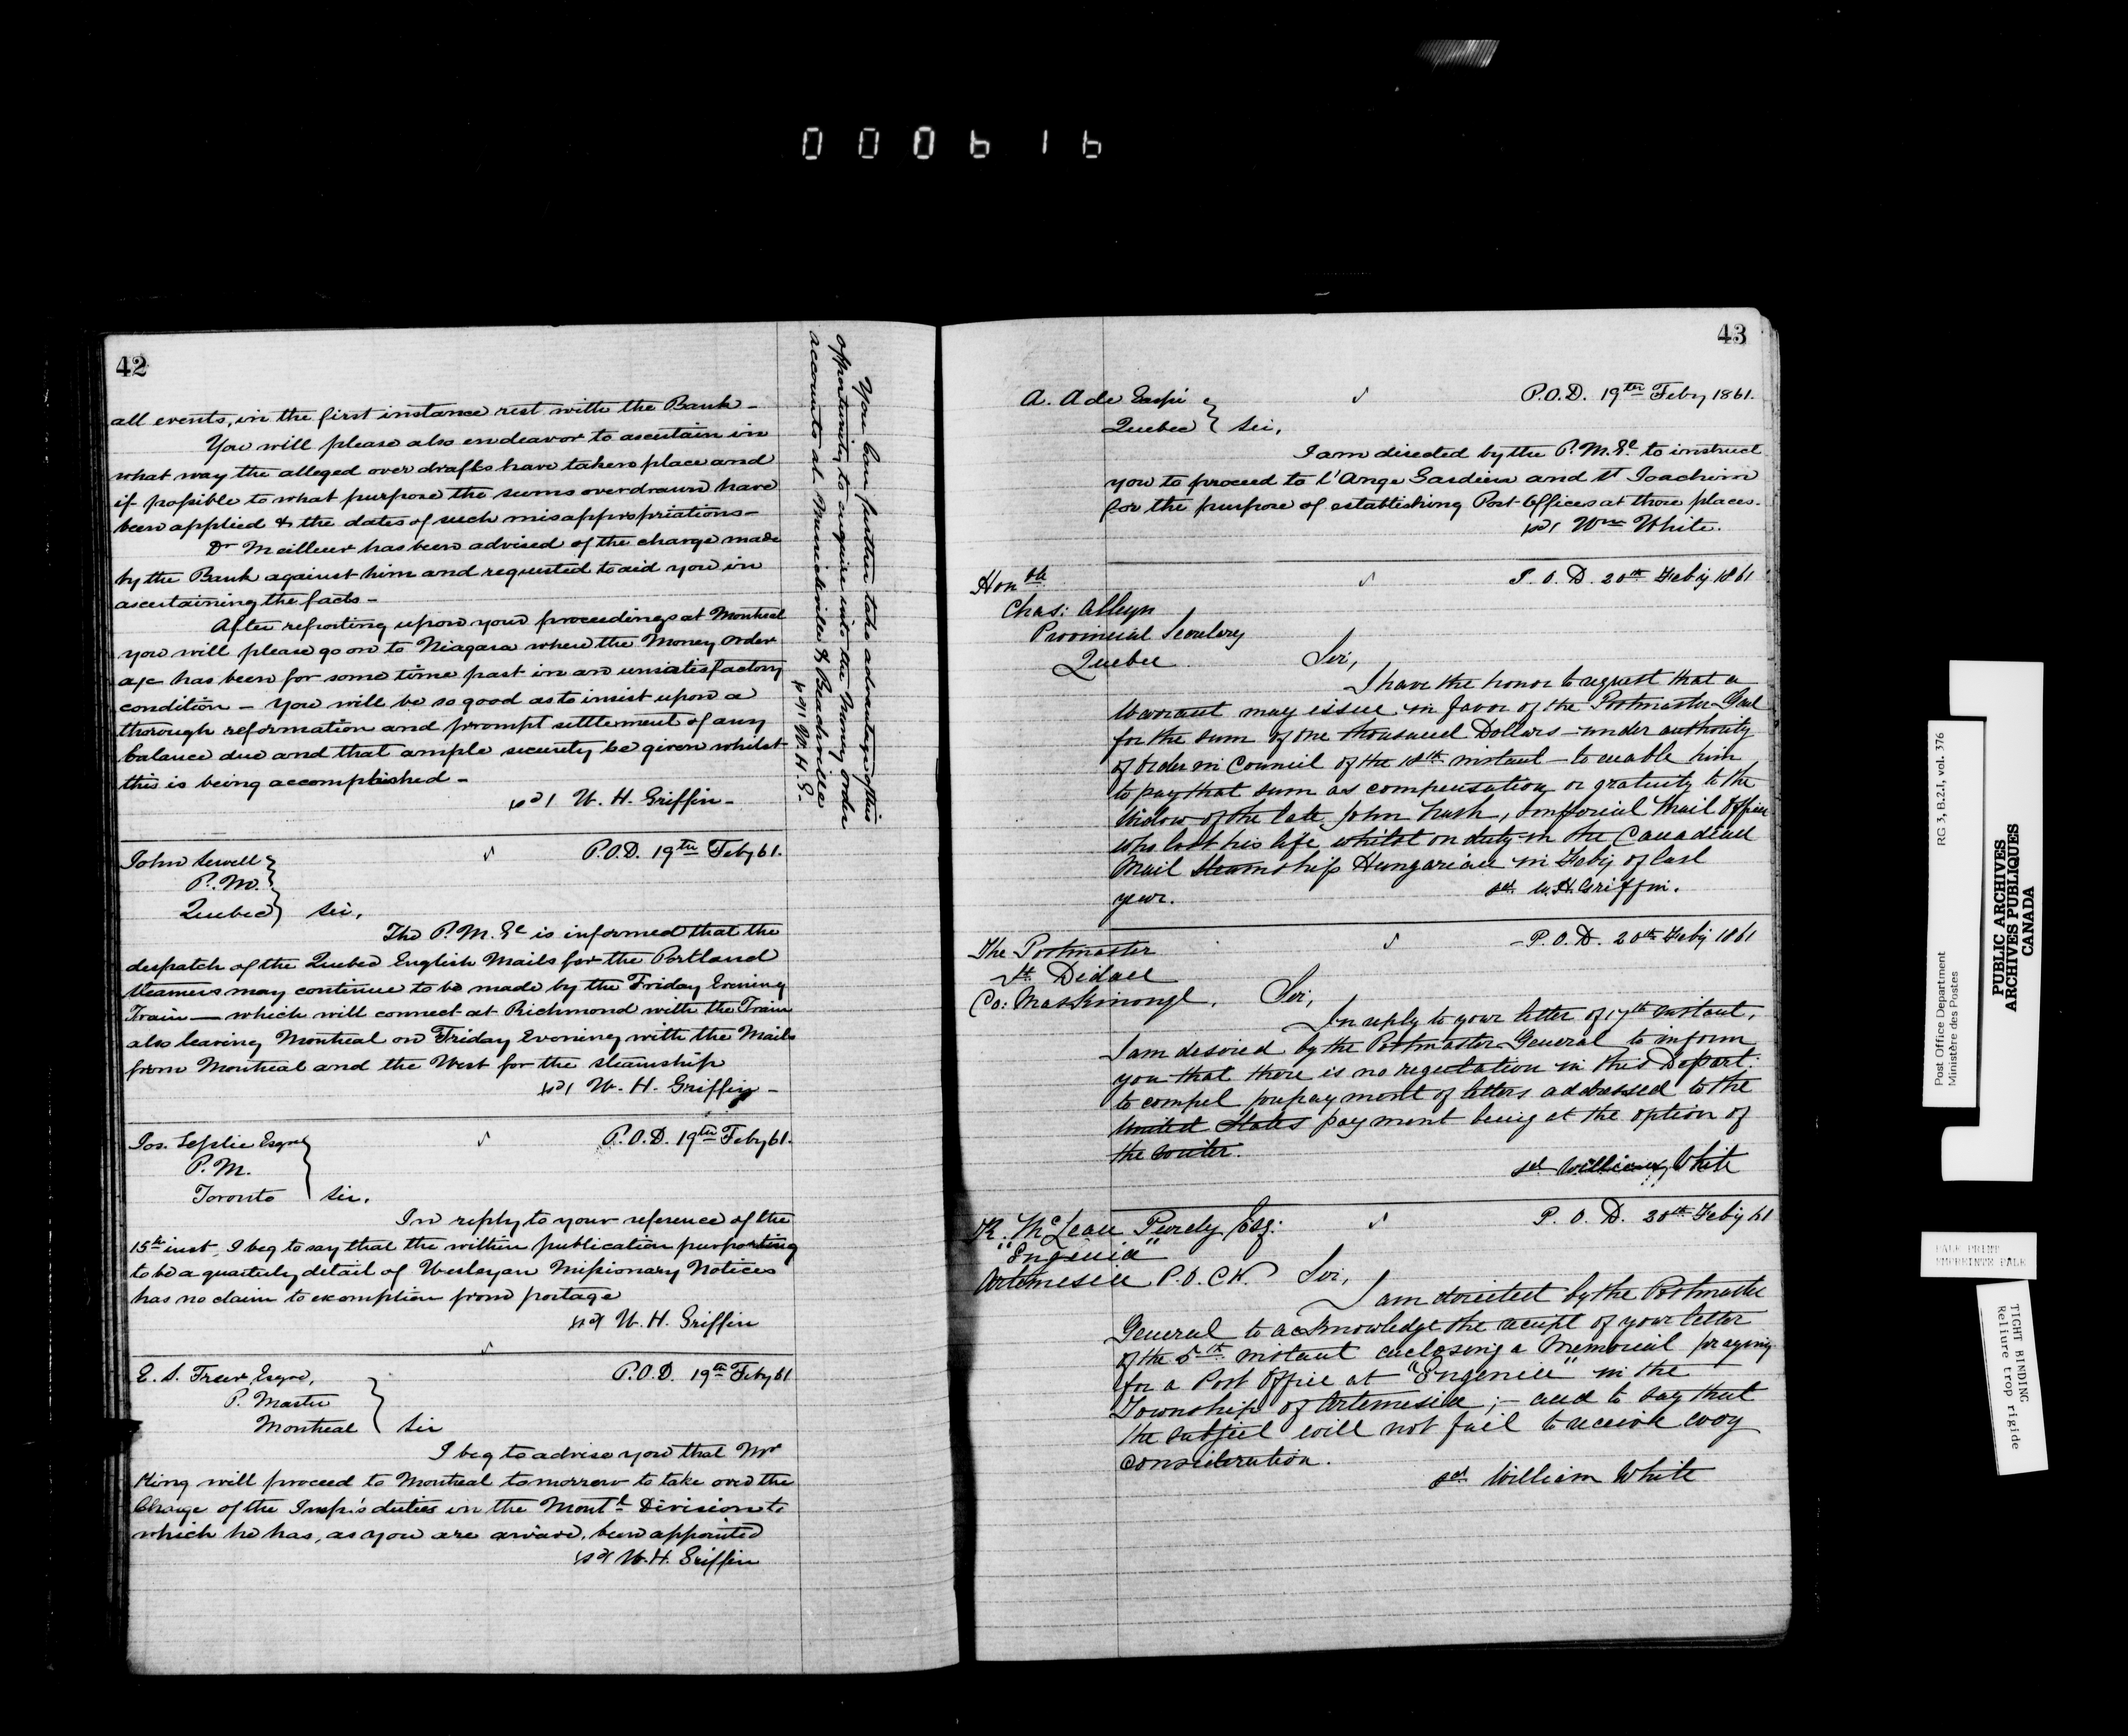 000616
42
all events, in the first instance rest with the Bank -
You will please also endeavor to ascertain in
what way the alleged over drafts have taken place and
if possible to what purpose the sums overdrawn have
been applied & the dates of such misappropriations -
Dr Meilleur has been advised of the charge made
by the Bank against him and requested to aid you in
ascertaining the facts -
After reporting upon your proceedings at Montreal
you will please go on to Niagara where the Money Order
a/c has been for some time past in an unsatisfactory
condition - You will be so good as to insist upon a
thorough reformation and prompt settlement of any
balance due and that ample security be given whilst
this is being accomplished -
sd W. H. Griffin -
You can further take advantage of this
opportunity to enquire into the Money Order
accounts at Merrickville & Beachville
sd W. H. G -
John Sewell
P. M.
Quebec
Sir,
P.O.D. 19th Feby 61.
The P. M. Gl is informed that the
despatch of the Quebec English Mails for the Portland
Steamers may continue to be made by the Friday Evening
Train — which will connect at Richmond with the Train
also leaving Montreal on Friday Evening with the Mails
from Montreal and the West for the steamship
sd W. H. Griffin -
Jos. Leslie Esqre
P. M.
Toronto
Sir.
P.O.D. 19th Feby 61.
In reply to your reference of the
15th inst, I beg to say that the within publication purporting
to be a quarterly detail of Wesleyan Missionary Notices
has no claim to exemption from postage
sd W. H. Griffin
E. S. Freer Esqre,
P. Master
Montreal
Sir
P.O.D. 19th Feby 61
I beg to advise you that Mr
King will proceed to Montreal tomorrow to take over the
Charge of the Insp.'s duties in the Montl Division to
which he has, as you are aware, been appointed
sd W. H. Griffin
43
A. A de
Quebec
Sir,
P.O.D. 19th Feby 1861.
I am directed by the P. M. Gl to instruct
you to proceed to l'Ange Gardien and St Joachim
for the purpose of establishing Post Offices at those places.
sd Wm White.
Honble
Chas: Alleyn
Provincial Secretary
Quebec
P. O. D. 20th Feby 1861
Sir,
I have the honor to request that a
Warrant may issue in favor of the Postmaster Genl
for the sum of One thousand Dollars - under authority
of Order in Council of the 18th instant - to enable him
to pay that sum as compensation or gratuity to the
Widow of the late John Nash, Imperial Mail Officer
who lost his life whilst on duty in the Canadian
Mail Steamship Hungarian in Feby of last
year.
sd W. H. Griffin.
The Postmaster
St Didace
Co: Maskinongé.
P. O. D. 20th Feby 1861
Sir,
In reply to your letter of 17th instant,
I am desired by the Postmaster General to inform
you that there is no regulation in this Depart:
to compel prepayment of letters addressed to the
United States payment being at the option of
the writer.
sd William White
McLean Purdy Esq:
"Eugenia"
Artemesia P. O. C. W.
P. O. D. 20th Feby 61
Sir,
I am directed by the Postmaster
General to acknowledge the receipt of your letter
of the 5th instant enclosing a Memorial praying
for a Post Office at "Eugenia" in the
Township of Artemesia; - and to say that
the subject will not fail to receive every
consideration.
sd William White
Post Office Department
Ministère des Postes
RG 3, B.2.1, vol. 376
PUBLIC ARCHIVES
ARCHIVES PUBLIQUES
CANADA
PALE PRINT
EMPREINTE PALE
TIGHT BINDING
Reliure trop rigide